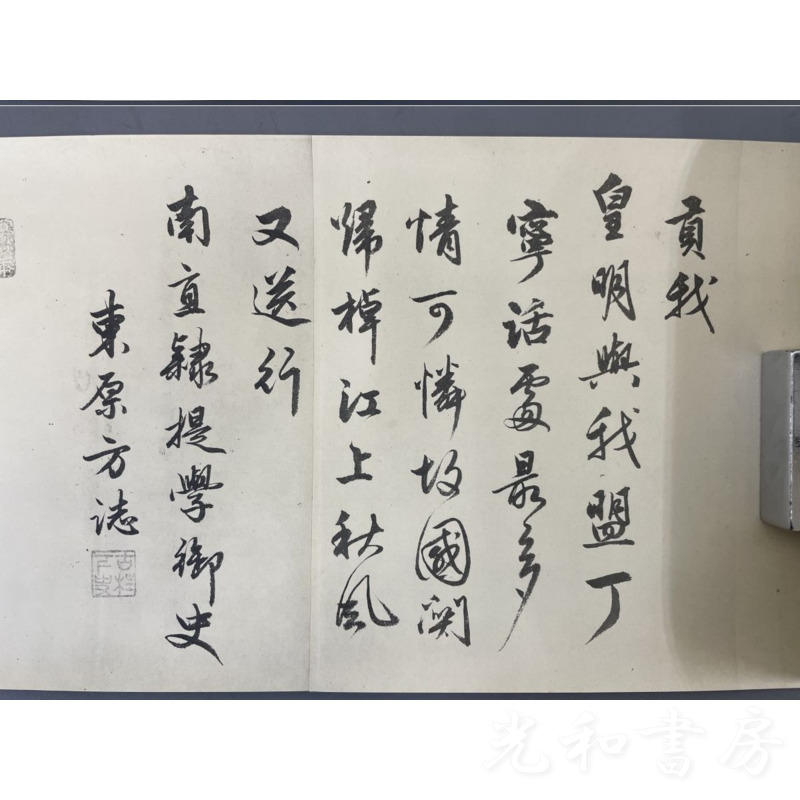 貢我
皇明與我盟丁
寧話處最多
情可憐故國関
歸棹江上秋風
又送行
南直隸提學御史
東原方誌
光和書房